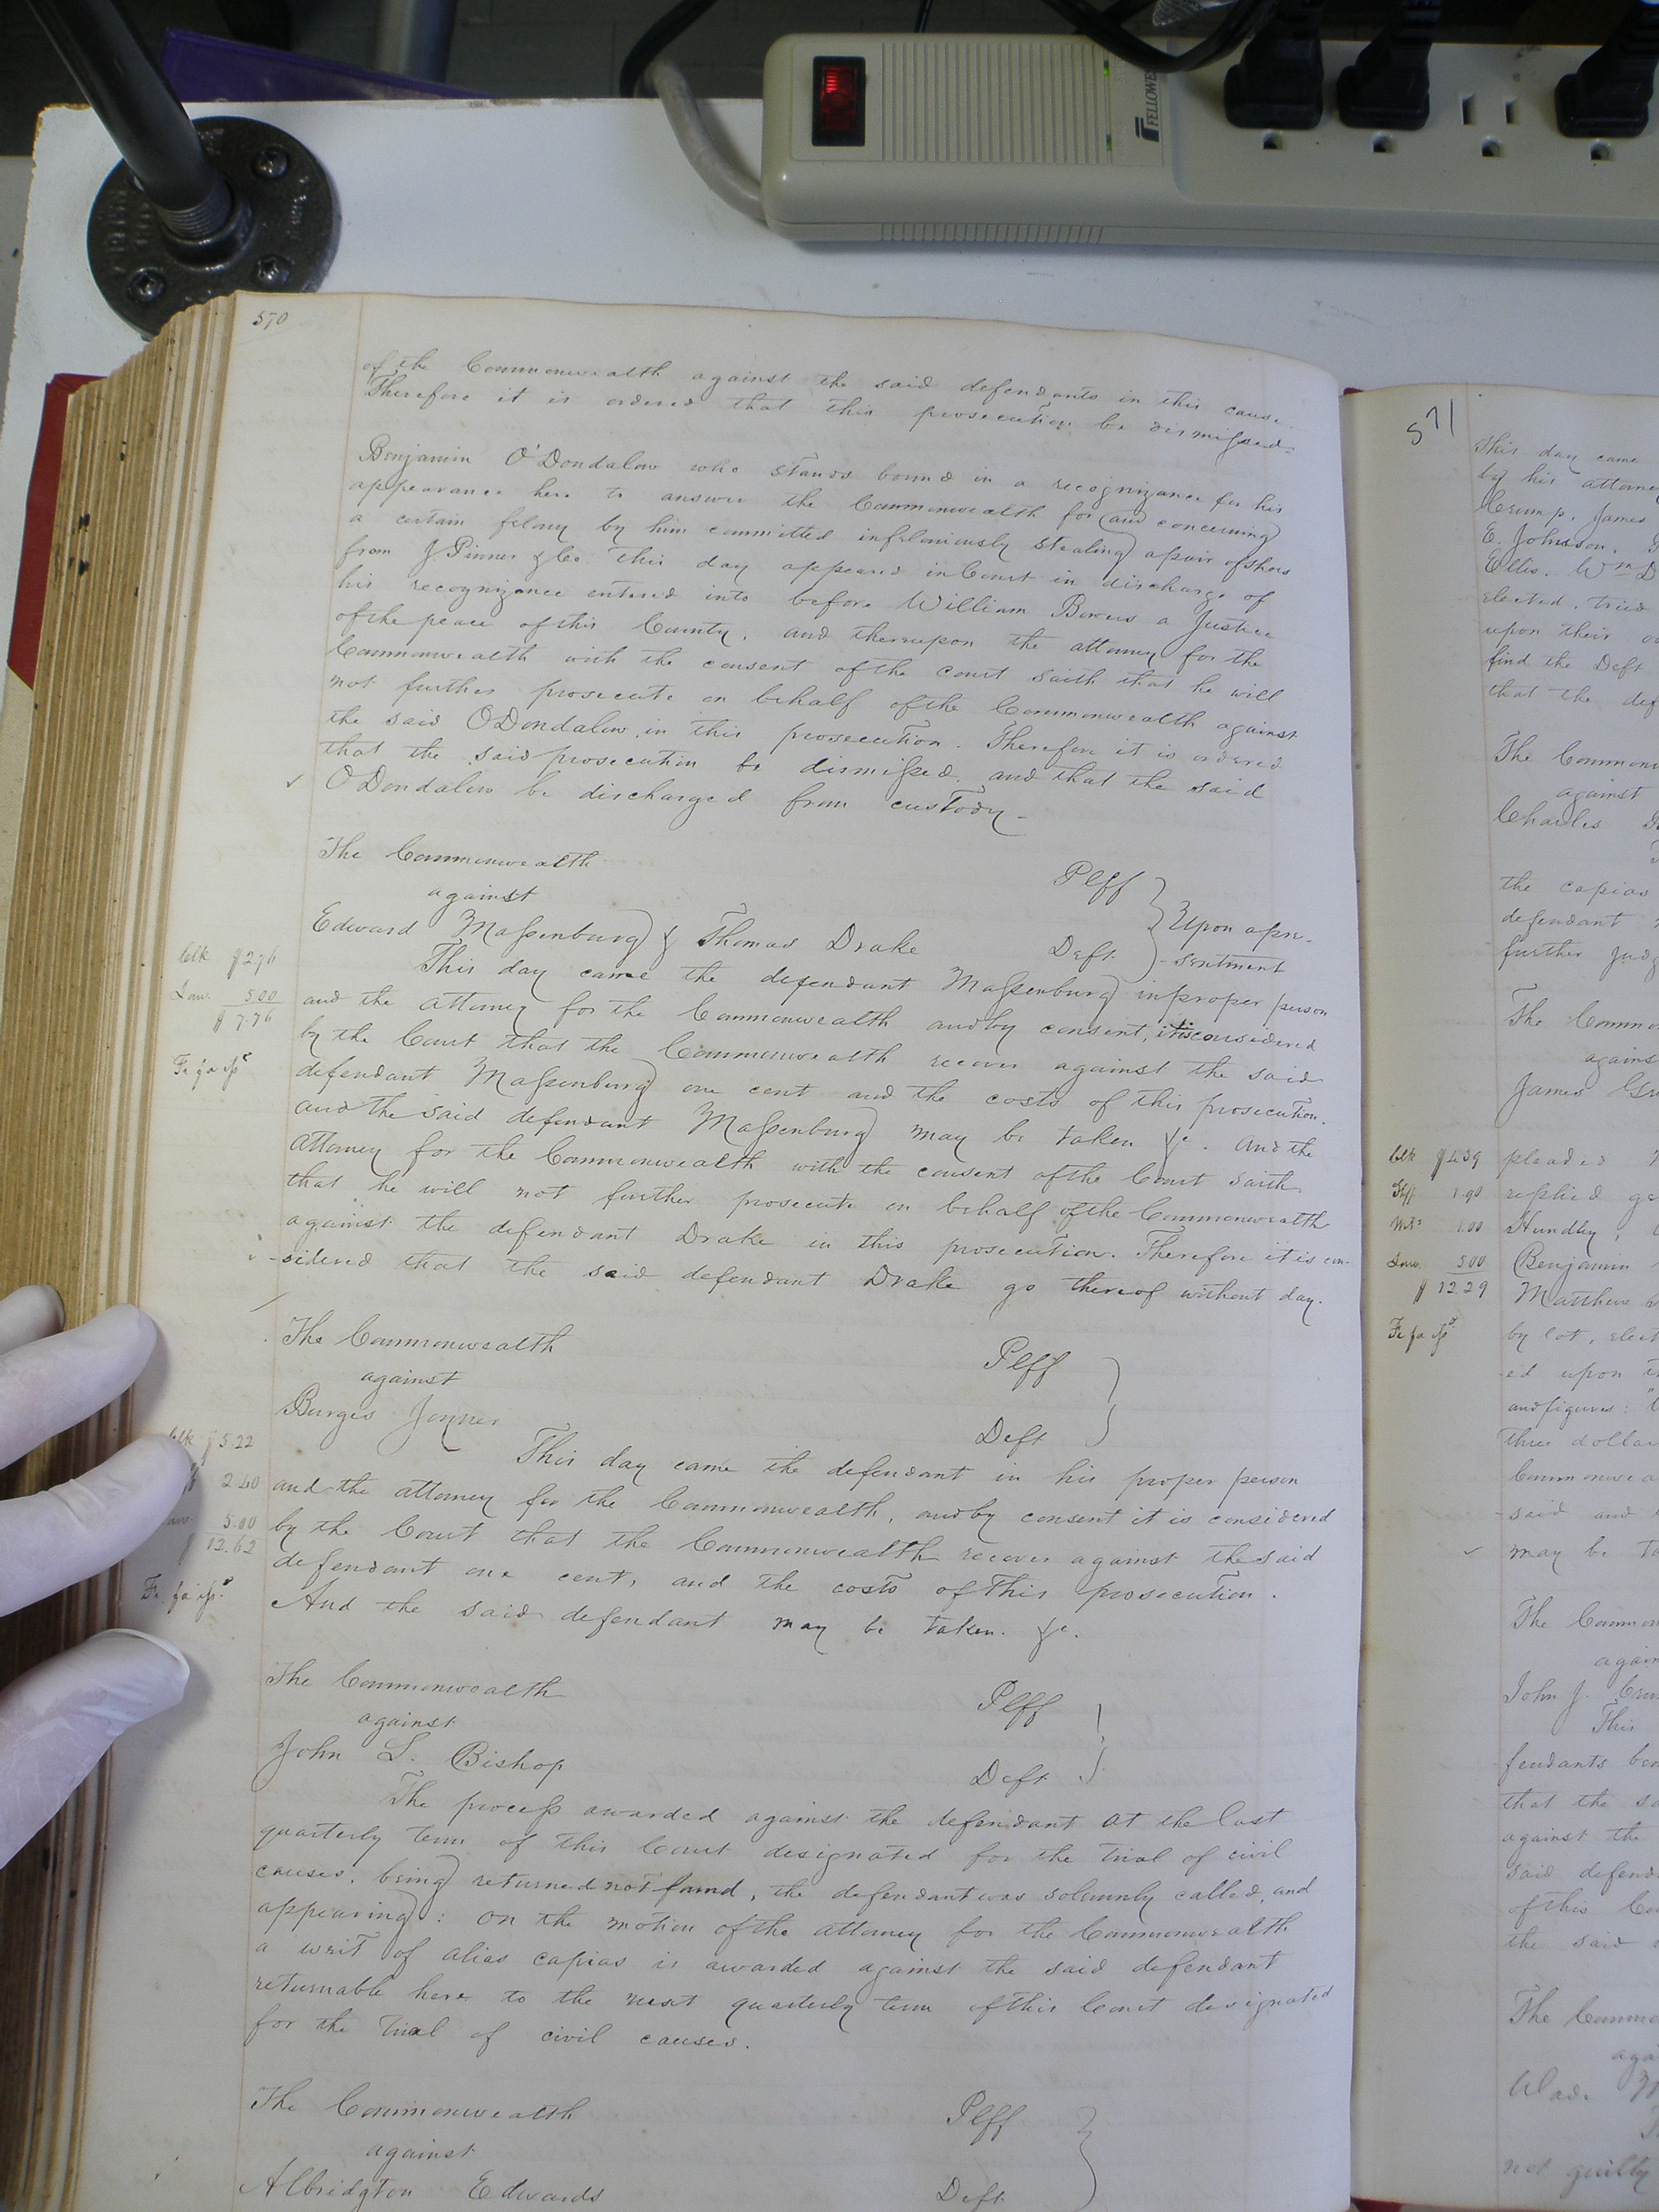 FELLOWES
570
of the Commonwealth against the said defendants in this cause.
Therefore it is ordered that this prosecution be dismissed
Benjamin O'Dondalow who stands bound in a recognizance for his
appearance here to answer the Commonwealth for and concerning
a certain felony by him committed in feloniously stealing a pair of shoes
from J. Pinner & Co. This day appeared in Court in discharge of
his recognizance entered into before William Bowers a Justice
of the peace of this County, and thereupon the attorney for the
Commonwealth with the consent of the court saith that he will
not further prosecute on behalf of the Commonwealth against
the said O'Dondalow, in this prosecution. Therefore it is ordered
that the said prosecution be dismissed, and that the said
O'Dondalow be discharged from custody -
The Commonwealth Plff
against
Edward Massenburg & Thomas Drake Deft
Upon apre-
-sentment
Clk $2.76
Law. 5.00
$7.76
Fi fa isd
This day came the defendant Massenburg in proper person
and the attorney for the Commonwealth and by consent, it is considered
by the Court that the Commonwealth recover against the said
defendant Massenburg one cent and the costs of this prosecution.
and the said defendant Massenburg may be taken &c. And the
attorney for the Commonwealth with the consent of the Court saith
that he will not further prosecute on behalf of the Commonwealth
against the defendant Drake in this prosecution. Therefore it is con-
-sidered that the said defendant Drake go thereof without day.
The Commonwealth Plff
against
Burges Joyner Deft
Clk $5.22
2.40
5.00
12.62
Fi fa isd
This day came the defendant in his proper person
and the attorney for the Commonwealth, and by consent it is considered
by the Court that the Commonwealth recover against the said
defendant one cent, and the costs of this prosecution.
And the said defendant may be taken. &c.
The Commonwealth Plff
against
John L. Bishop Deft
The process awarded against the defendant at the last
quarterly term of this Court designated for the trial of civil
causes, being returned not found, the defendant was solemnly called, and
appearing: on the motion of the attorney for the Commonwealth
a writ of alias capias is awarded against the said defendant
returnable here to the next quarterly term of this Court designated
for the trial of civil causes.
The Commonwealth Plff
against
Albridgton Edwards Deft
571
This day came
by his attorney
Crump, James
E. Johnson,
Ellis. Wm D
elected, tried
upon their
find the Deft
that the def
The Common
against
Charles
the capias
defendant
further judg
The Common
against
James
Clk $4.39
Shff 1.90
Wits 1.00
Law 5.00
$12.29
Fi fa isd
pleaded
replied
Hundley,
Benjamin
Matthew
by lot, elect
-ed upon
and figures:
three dolla
Commonwea
said and
may be ta
The Common
again
John J.
This
fendants
that the
against the
said defend
of this Co
the said
The Commo
aga
not guilty